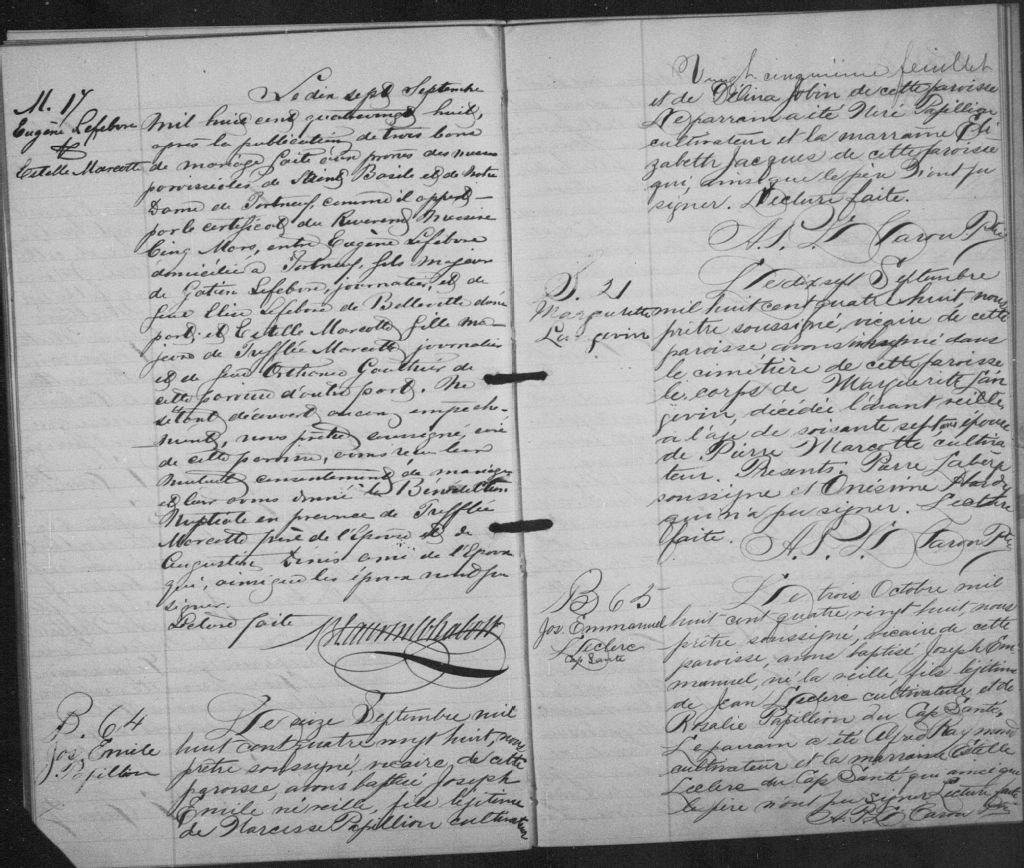 M. 17
Eugène Lefebvre
&
Estelle Marcotte
Le dix sept Septembre
Mil huit cent quatrevingt huit,
après la publication de trois bans
de mariage faite aux prônes des messes
paroissiales de Saint Basile et de Notre
Dame de Portneuf, comme il appert
par le certificat du Reverend Messire
Cinq Mars, entre Eugène Lefebvre
domicilié à Portneuf, fils majeur
de Gatien Lefebvre, journalier, et de
feue Lefebvre de Belleville d'une
part, et Estelle Marcotte fille ma-
jeure de Trefflée Marcotte journalier
et de feue Gauthier de
cette paroisse d'autre part. Ne
s'étant découvert aucun empeche-
ment, nous prêtre soussigné, curé
de cette paroisse, avons reçu leur
mutuel consentement de mariage
et leur avons donné la Bénédiction
Nuptiale en presence de Trefflée
Marcotte père de l'Epouse et de
Augustin ami de l'Epoux
qui, ainsi que les époux n'ont pu
signer.
Lecture faite
B. 64
Jos. Emile
Papillon
Le seize Septembre mil
huit cent quatre vingt huit, nous
prêtre soussigné, vicaire de cette
paroisse, avons baptisé Joseph
Emile né veille, fils légitime
de Narcisse Papillion cultivateur
Vingt cinquième feuillet
et de Délina Jobin de cette paroisse
Le parrain a été Néré Papillion
cultivateur et la marraine Eli
zabeth Jacques de cette paroisse
qui, ainsi que le père n'ont pu
signer. Lecture faite.
A. P. L. Caron Ptre
S. 21
Marguerite
Langevin
Le dix sept Septembre
mil huit cent quatre huit, nous
prêtre soussigné, vicaire de cette
paroisse avons inhumé dans
le cimetière de cette paroisse
le corps de Marguerite Lan
gevin, décédée l'avant veille,
a l'age de soixante sept ans épouse
de Pierre Marcotte cultiva
teur. Presents. Pierre
soussigné et Onésime Hardy
qui n'a pu signer. Lecture
faite. A. P. L. Caron Ptre
B 65
Jos. Emmanuel
Leclerc
Cap Santé
Le trois Octobre mil
huit cent quatre vingt huit, nous
prêtre soussigné, vicaire de cette
paroisse, avons baptisé Joseph Em
manuel, né la veille, fils légitime
de Jean Leclerc cultivateur et de
Rosalie Papillion du Cap Santé,
Le parrain a été Alfred Raymond
cultivateur et la marraine Estelle
Leclerc du Cap Santé qui ainsi que
le père n'ont pu signer Lecture faite
A. P. L. Caron Ptre